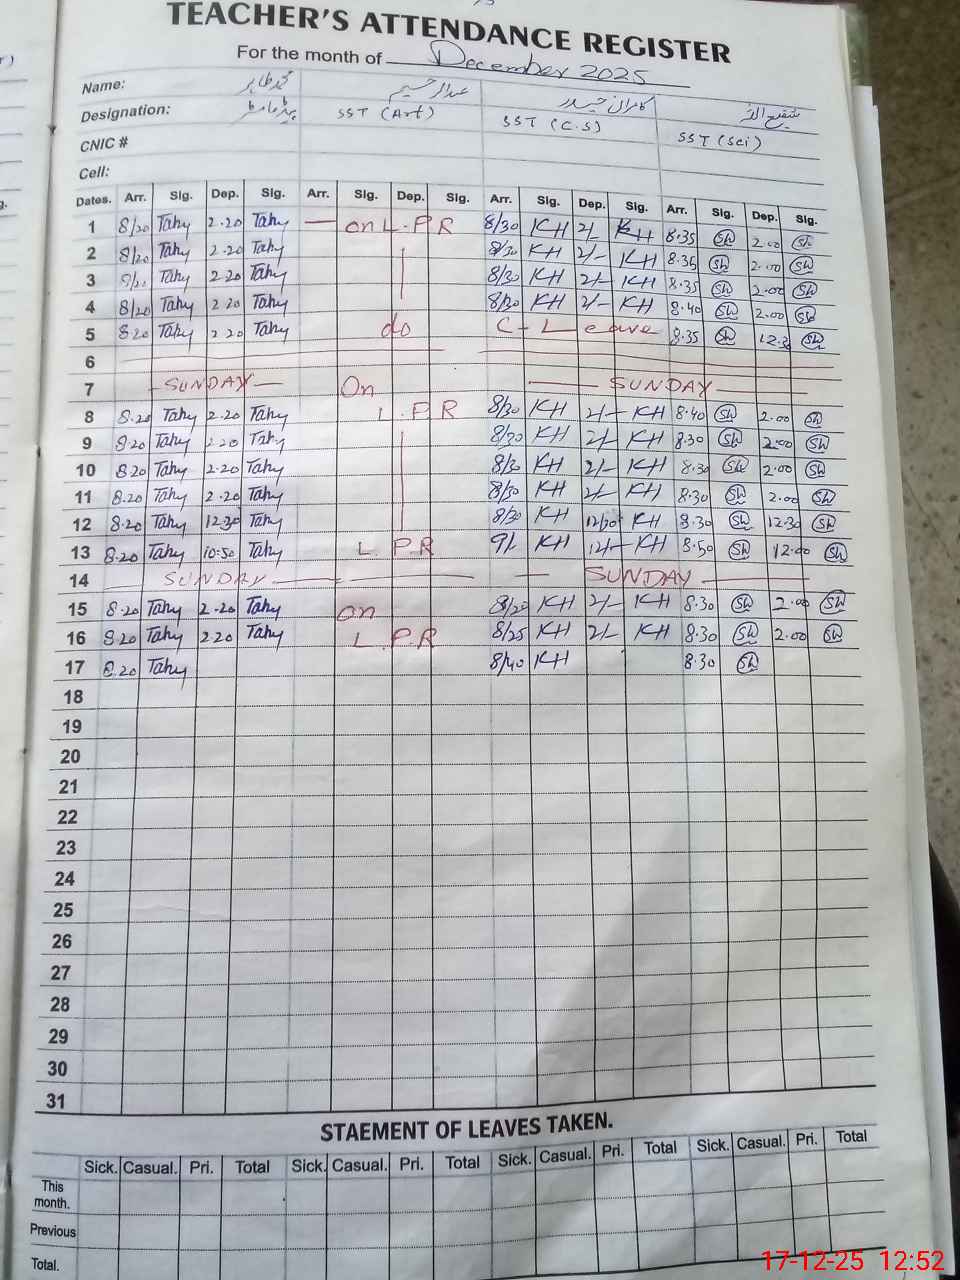 TEACHER'S ATTENDANCE REGISTER
For the month of December 2025
Name: محمد طاہر عبدالرحیم کامران حیدر شفیع اللہ
Designation: ہیڈ ماسٹر SST (Art) SST (C.S) SST (Sci)
CNIC #
Cell:
Dates. Arr. Sig. Dep. Sig. Arr. Sig. Dep. Sig. Arr. Sig. Dep. Sig. Arr. Sig. Dep. Sig.
1 8/20 Tahy 2.20 Tahy — on L.P R 8/30 KH 2/- KH 8.35 SH 2.00 SH
2 8/20 Tahy 2.20 Tahy 8/30 KH 2/- KH 8.35 SH 2.00 SH
3 8/20 Tahy 2.20 Tahy 8/30 KH 2/- KH 8.35 SH 2.00 SH
4 8/20 Tahy 2.20 Tahy 8/30 KH 2/- KH 8.40 SH 2.00 SH
5 8.20 Tahy 2.20 Tahy do C - Leave 8.35 SH 12.30 SH
6
7 SUNDAY On SUNDAY
8 8.20 Tahy 2.20 Tahy L.P R 8/30 KH 2/- KH 8.40 SH 2.00 SH
9 8.20 Tahy 2.20 Tahy 8/30 KH 2/- KH 8.30 SH 2.00 SH
10 8.20 Tahy 2.20 Tahy 8/30 KH 2/- KH 8.30 SH 2.00 SH
11 8.20 Tahy 2.20 Tahy 8/30 KH 2/- KH 8.30 SH 2.00 SH
12 8.20 Tahy 12.30 Tahy 8/30 KH 12/30 KH 8.30 SH 12.30 SH
13 8.20 Tahy 10:50 Tahy L.P.R 9/- KH 12/- KH 8.50 SH 12.00 SH
14 SUNDAY SUNDAY
15 8.20 Tahy 2.20 Tahy on 8/20 KH 2/- KH 8.30 SH 2.00 SH
16 8.20 Tahy 2.20 Tahy L.P.R 8/25 KH 2/- KH 8.30 SH 2.00 SH
17 8.20 Tahy 8/40 KH 8.30 SH
18
19
20
21
22
23
24
25
26
27
28
29
30
31
STAEMENT OF LEAVES TAKEN.
Sick. Casual. Pri. Total Sick. Casual. Pri. Total Sick. Casual. Pri. Total Sick. Casual. Pri. Total
This month.
Previous
Total.
17-12-25 12:52